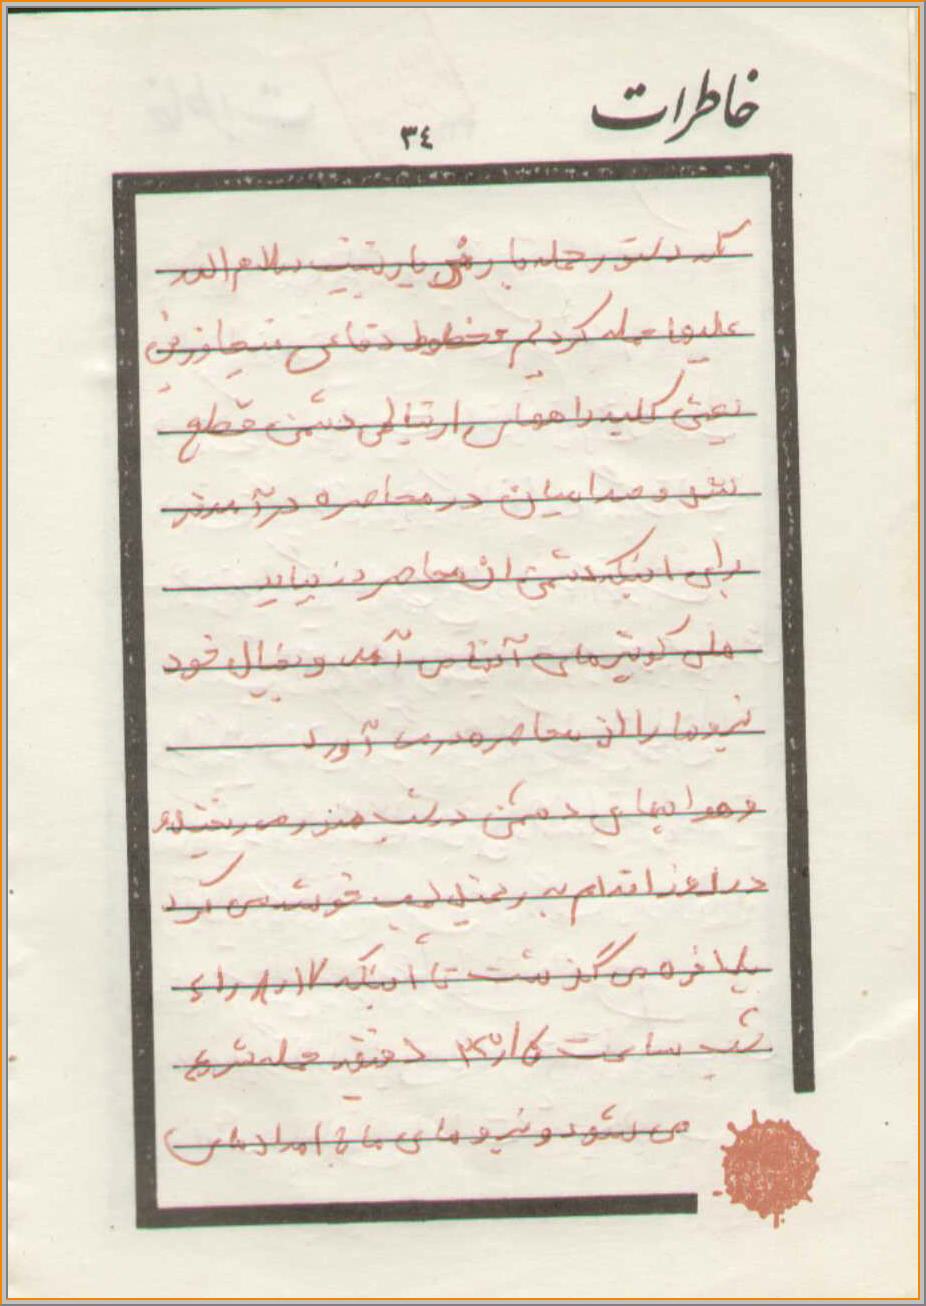 خاطرات
٣٤
که دستور حمله با رمز یا زینب سلام الله
علیها حمله کردیم خطوط دفاعی
یعنی کلید راههای ارتباطی دشمن قطع
شد و صدامیان در محاصره درآمدند
برای اینکه دشمن از محاصره در بیاید
هلی کوپترهای آنها می آمد و بخیال خود
نیروها را از محاصره در می آورد
و هواپیماهای دشمن در شب منور می ریختند و
در روز اقدام به خودش می کرد
بلاخره می گذشت تا اینکه
شب ساعت دقیقه حمله شروع
می شود و نیروهای ما با امدادهای